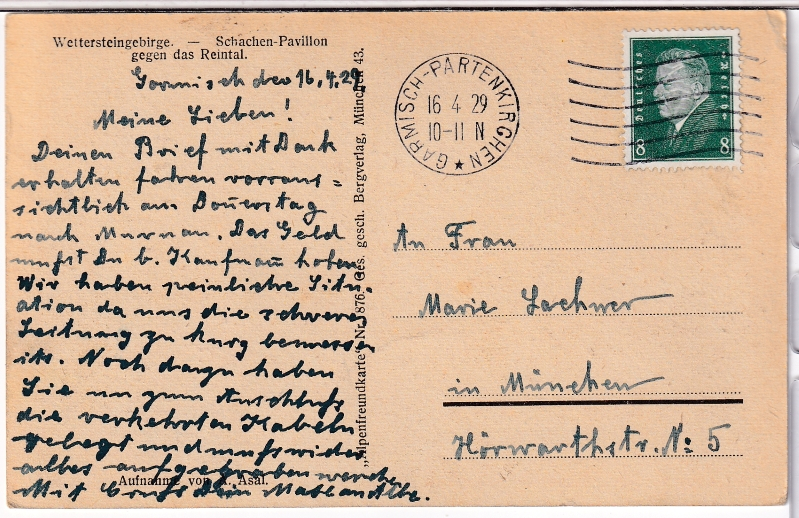 Wettersteingebirge. — Schachen-Pavillon
gegen das Reintal.
Garmisch den 16.4.29
Meine Lieben!
Deinen Brief mit Dank
erhalten fahren voraus=
sichtlich am Donnerstag
nach Murnau. Das Geld
mußt Du b. Kaufmann holen
Wir haben peinliche Situ-
ation da uns die schweren
Leitung zu kurz bemessen
ist. Noch dazu haben
Sie un zum Anschluß
die verkehrten Kabeln
gelegt und muß wider
alles aufgegraben werden
Mit Gruß Dein
Aufnahme von A. Asal.
„Alpenfreundkarte" Nr. 876. Ges. gesch. Bergverlag, München 43.
GARMISCH-PARTENKIRCHEN
16 4 29
10-11 N
Deutsches Reich
8 8
An Frau
Marie Lachner
in München
Hörwarthstr. No 5